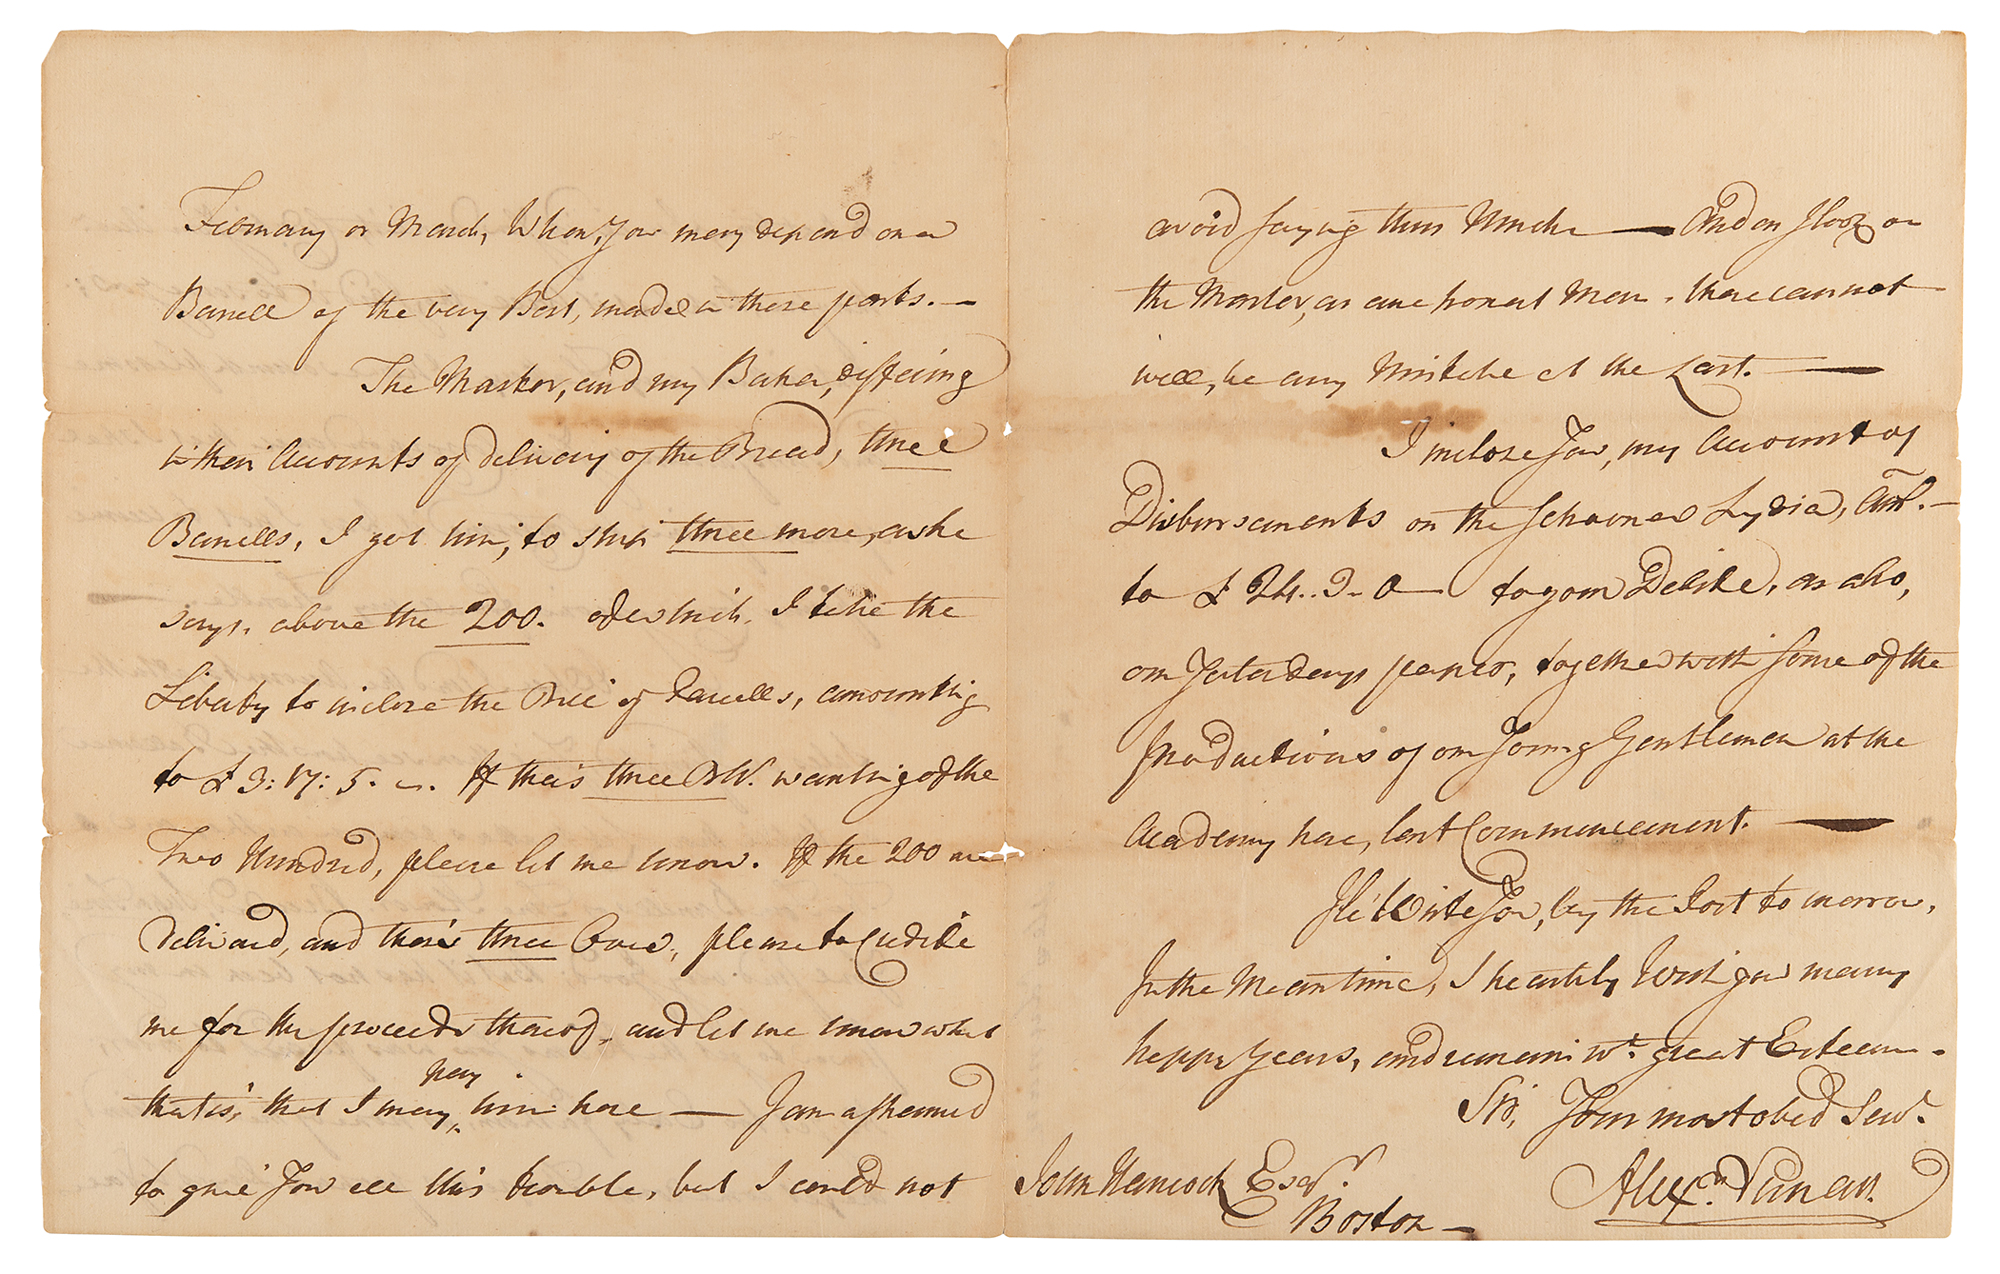 February or March, When, You may depend on a
Barrell of the very Best, made in these parts. —
The Master, and my Baker, differing
in their Accounts of delivery of the Bread, three
Barrells, I got him, to ship three more, as he
says, above the 200. of which, I take the
Liberty to inclose the Price of Parcells, amounting
to £ 3: 17: 5. —. If theirs three Bbl. wanting of the
Two Hundred, please let me know. If the 200 are
delivered, and theirs three Over, please to Credite
me for the proceeds thereof, and let me know what
that is, that I may pay him here — I am ashamed
to give You all this trouble, but I could not
avoid saying thus Much — And as I look on
the Master, as ane honest Man, there cannot
well, be any Mistake at the Last. —
I inclose You, my Account of
Disbursements on the Schooner Lydia, Amt. —
to £ 24..3-0 — to your Debite, as also,
our Yesterdays paper, together with some of the
productions of our Young Gentlemen at the
Academy here, last Commencement. —
I'le Write You, by the Post to morrow,
In the Meantime, I heartily Wish you many
happy Years, and remain wt. great Esteem —
Sir, Your most obed Servt.
Alexr.
John Hancock Esqr.
Boston —